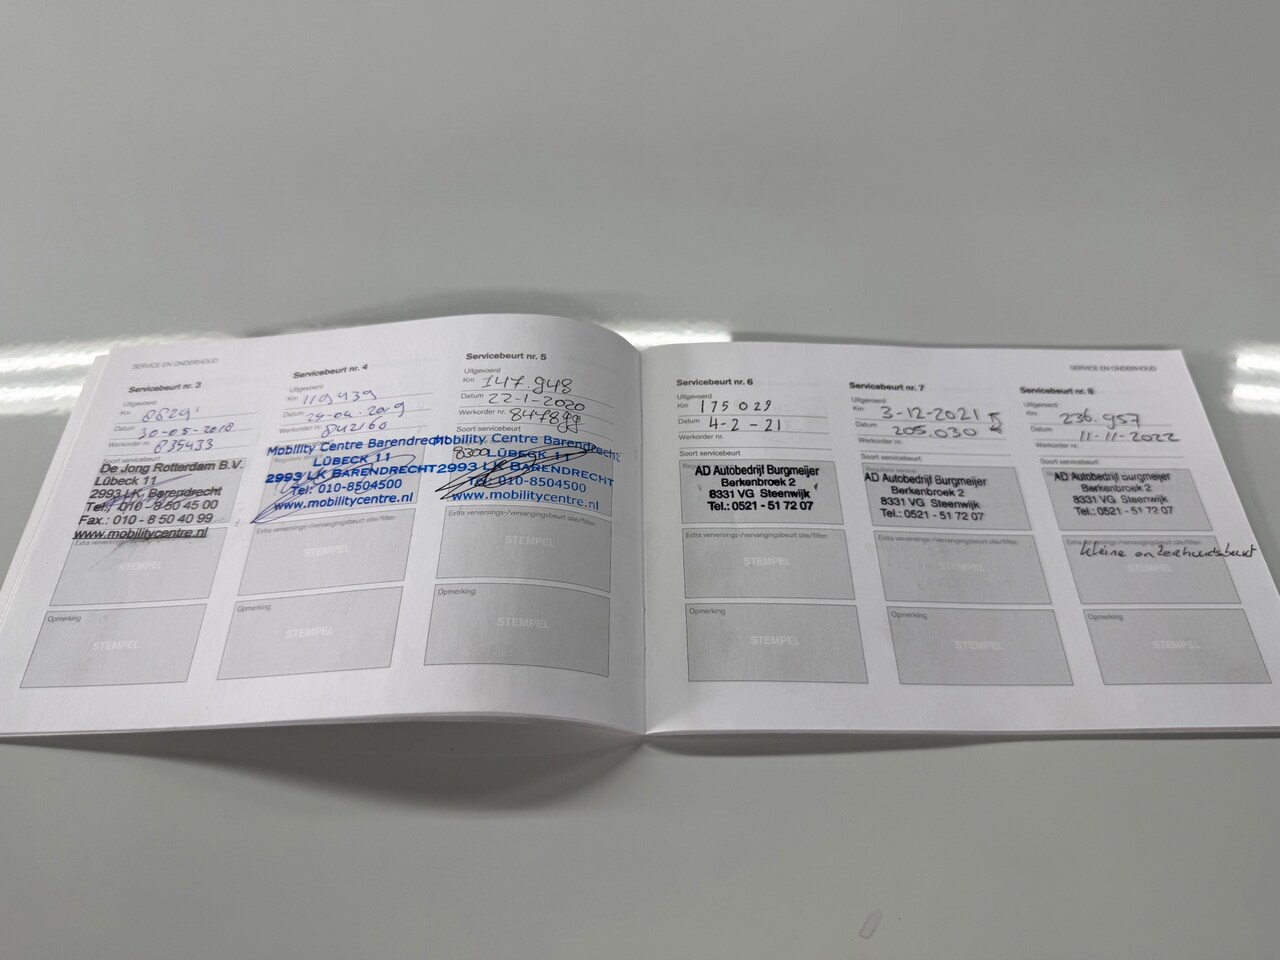 SERVICE EN ONDERHOUD
Servicebeurt nr. 3
Uitgevoerd
Km 8629
Datum 30-05-2018
Werkorder nr. 835433
Soort servicebeurt
De Jong Rotterdam B.V.
Lübeck 11
2993 LK Barendrecht
Tel.: 010 - 8 50 45 00
Fax.: 010 - 8 50 40 99
www.mobilitycentre.nl
STEMPEL
Opmerking
STEMPEL
Servicebeurt nr. 4
Uitgevoerd
Km 119439
Datum 29-04-2019
Werkorder nr. 842160
Mobility Centre Barendrecht
LÜBECK 11
2993 LK BARENDRECHT
Tel: 010-8504500
www.mobilitycentre.nl
Extra verversings-/vervangingsbeurt olie/filter:
STEMPEL
Opmerking
STEMPEL
Servicebeurt nr. 5
Uitgevoerd
Km 147.948
Datum 22-1-2020
Werkorder nr. 847899
Soort servicebeurt
Mobility Centre Barendrecht
LÜBECK 11
2993 LK BARENDRECHT
Tel: 010-8504500
www.mobilitycentre.nl
Extra verversings-/vervangingsbeurt olie/filter:
STEMPEL
Opmerking
STEMPEL
SERVICE EN ONDERHOUD
Servicebeurt nr. 6
Uitgevoerd
Km 175029
Datum 4-2-21
Werkorder nr.
Soort servicebeurt
AD Autobedrijf Burgmeijer
Berkenbroek 2
8331 VG Steenwijk
Tel.: 0521 - 51 72 07
Extra verversings-/vervangingsbeurt olie/filter:
STEMPEL
Opmerking
STEMPEL
Servicebeurt nr. 7
Uitgevoerd
Km 3-12-2021
Datum 205.030
Werkorder nr.
Soort servicebeurt
AD Autobedrijf Burgmeijer
Berkenbroek 2
8331 VG Steenwijk
Tel.: 0521 - 51 72 07
Extra verversings-/vervangingsbeurt olie/filter:
STEMPEL
Opmerking
STEMPEL
Servicebeurt nr. 8
Uitgevoerd
Km 236.957
Datum 11-11-2022
Werkorder nr.
Soort servicebeurt
AD Autobedrijf Burgmeijer
Berkenbroek 2
8331 VG Steenwijk
Tel.: 0521 - 51 72 07
kleine onderhoudsbeurt
STEMPEL
Opmerking
STEMPEL